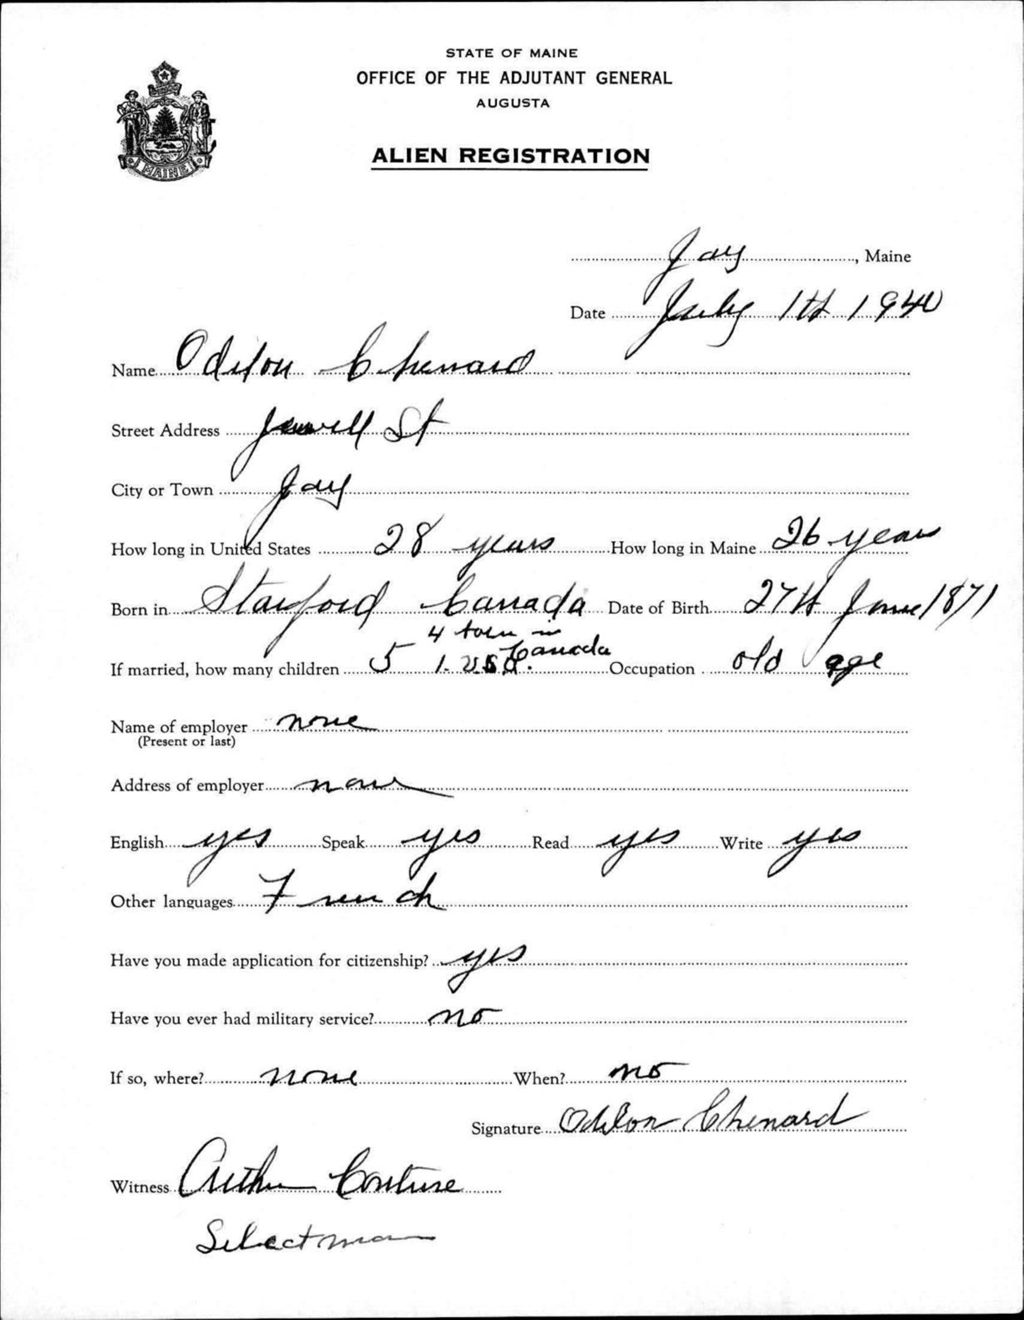 STATE OF MAINE
OFFICE OF THE ADJUTANT GENERAL
AUGUSTA
MAINE
ALIEN REGISTRATION
Jay, Maine
Date July 1st 1940
Name Odilon Chenard
Street Address Jewell St
City or Town Jay
How long in United States 28 years How long in Maine 26 years
Born in Canada Date of Birth 27th June 1871
4 born in Canada
If married, how many children 5 1. USA. Occupation old age
Name of employer none
(Present or last)
Address of employer none
English yes Speak yes Read yes Write yes
Other languages French
Have you made application for citizenship? yes
Have you ever had military service? no
If so, where? none When? no
Signature Odilon Chenard
Witness Arthur Couture
Selectman